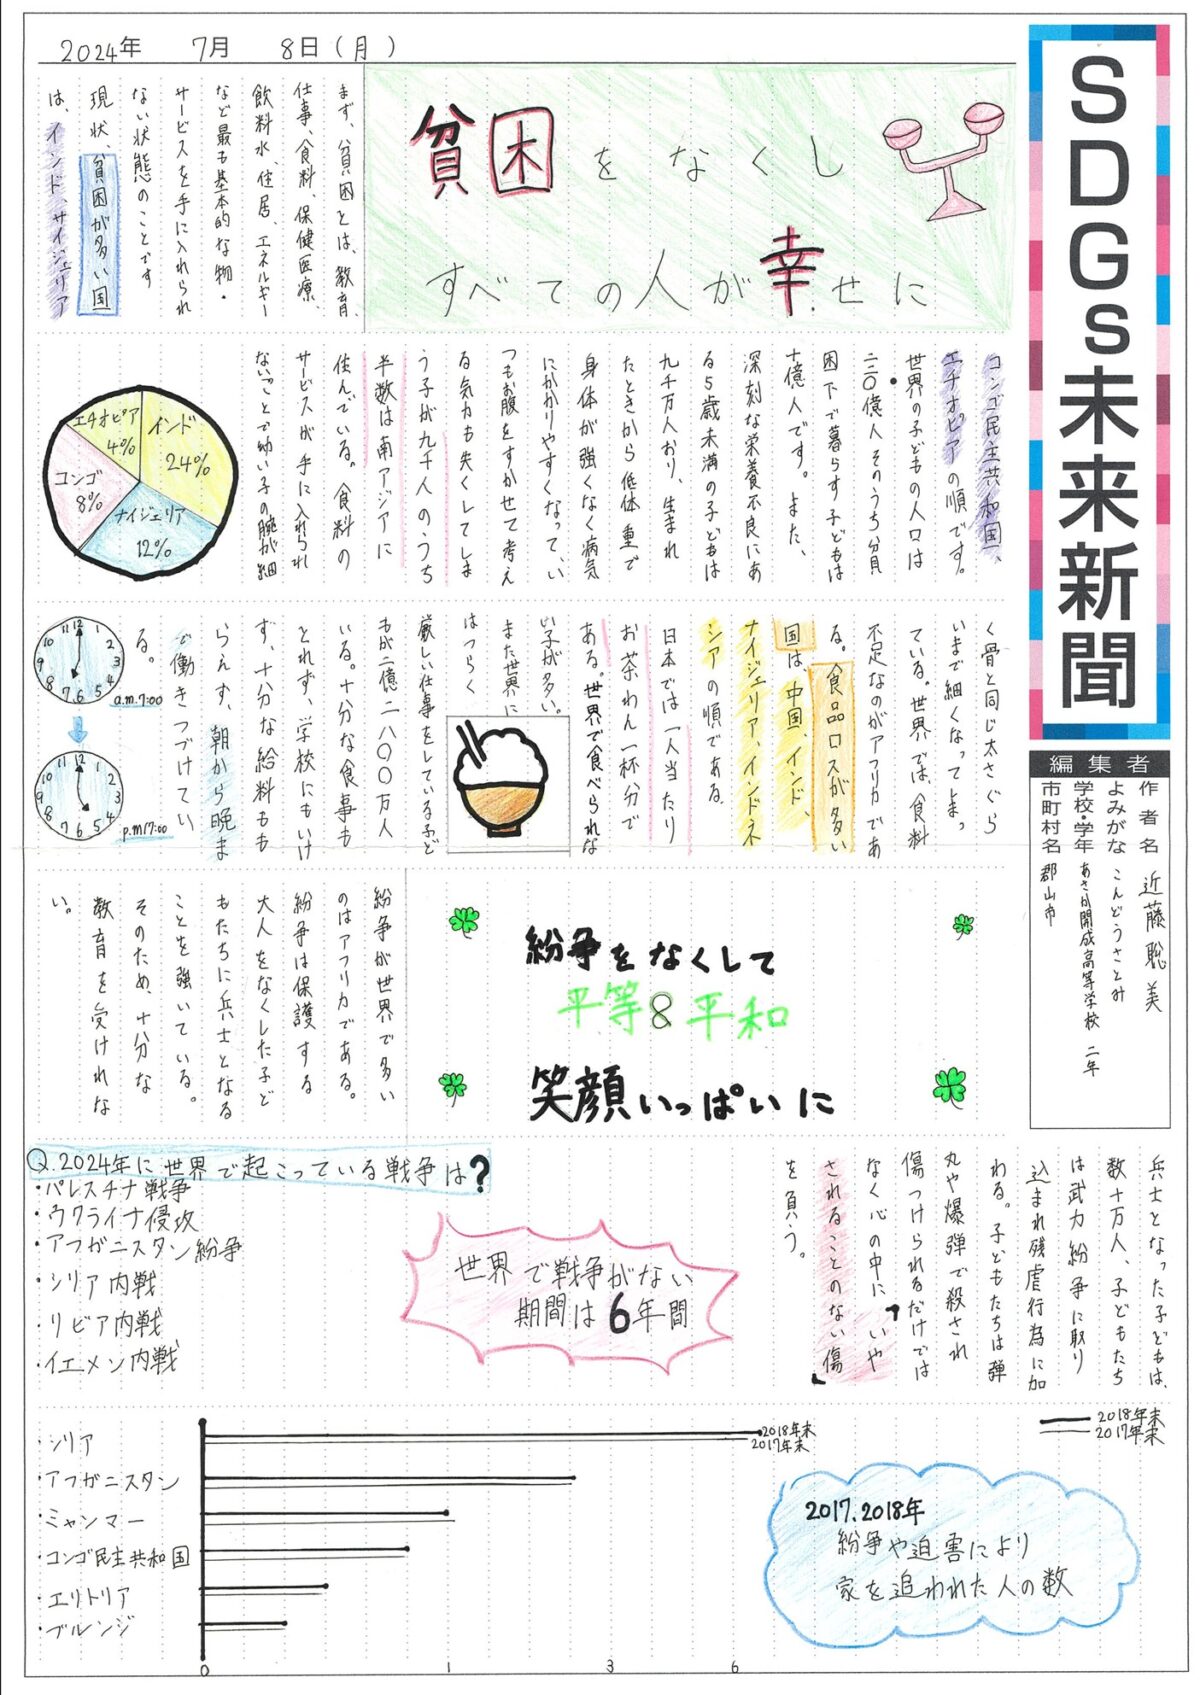 2024年 7月 8日(月)
SDGs未来新聞
編集者
作者名 近藤聡美
よみがな こんどうさとみ
学校・学年 あさか開成高等学校 二年
市町村名 郡山市
貧困をなくし
すべての人が幸せに
まず、貧困とは、教育、
仕事、食料、保健医療、
飲料水、住居、エネルギー
など最も基本的な物・
サービスを手に入れられ
ない状態のことです
現状、貧困が多い国
は、インド、サイジェリア
コンゴ民主共和国、
エチオピアの順です。
世界の子どもの人口は
二二〇億人そのうち分貝
困下で暮らす子どもは
十億人です。また、
深刻な栄養不良にあ
る5歳未満の子どもは
九千万人おり、生まれ
たときから低体重で
身体が強くなく病気
にかかりやすくなって、い
つもお腹をすかせて考え
る気力も失くしてしま
う子が九千人のうち
半数は南アジアに
住んでいる。食料の
サービスが手に入れられ
ないことで幼い子の腕が細
エチオピア
4%
インド
24%
コンゴ
8%
ナイジェリア
12%
く骨と同じ太さぐら
いまで細くなってしまっ
ている。世界では、食料
不足なのがアフリカであ
る。食品ロスが多い
国は、中国、インド、
ナイジェリア、インドネ
シアの順である。
日本では一人当たり
お茶わん一杯分で
ある。世界で食べられな
い子が多い。
また世界に
はつらく
厳しい仕事をしている子ど
もが二億二八〇〇万人
いる。十分な食事も
とれず、学校にもいけ
ず、十分な給料ももら
らえず、朝から晩ま
で働きつづけてい
る。
12
1
2
3
4
5
6
7
8
9
10
11
a.m.7:00
12
1
2
3
4
5
6
7
8
9
10
11
p.m/7:00
紛争をなくして
平等&平和
笑顔いっぱいに
紛争が世界で多い
のはアフリカである。
紛争は保護する
大人をなくした子ど
もたちに兵士となる
ことを強いている。
そのため、十分な
教育を受けれな
い。
兵士となった子どもは、
数十万人、子どもたち
は武力紛争に取り
込まれ残虐行為に加
わる。子どもたちは弾
丸や爆弾で殺され
傷つけられるだけでは
なく心の中に「いや
されることのない傷」
を負う。
Q.2024年に世界で起こっている戦争は?
・パレスチナ戦争
・ウクライナ侵攻
・アフガニスタン紛争
・シリア内戦
・リビア内戦
・イエメン内戦
世界で戦争がない
期間は6年間
・シリア
・アフガニスタン
・ミャンマー
・コンゴ民主共和国
・エリトリア
・ブルンジ
2018年末
2017年末
2018年末
2017年末
0
1
3
6
2017.2018年
紛争や迫害により
家を追われた人の数